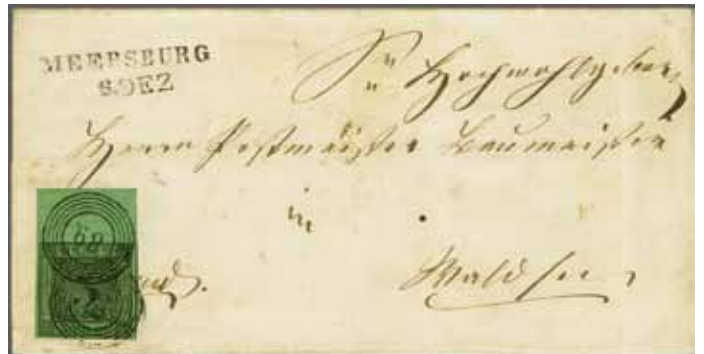 MEERSBURG
8.DEZ
Sr Hochwohlgeboren
Herrn Postmeister Baumeister
in
Waldsee